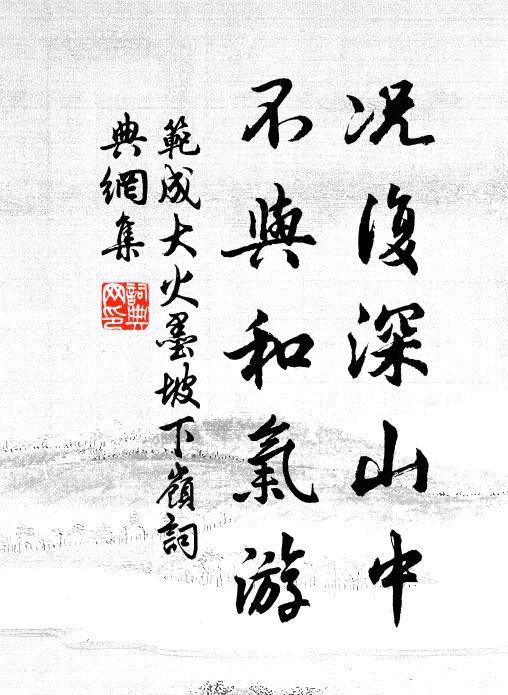 况復深山中
不與和氣游
範成大火墨坡下嶺詞
典網集
詞典
网印